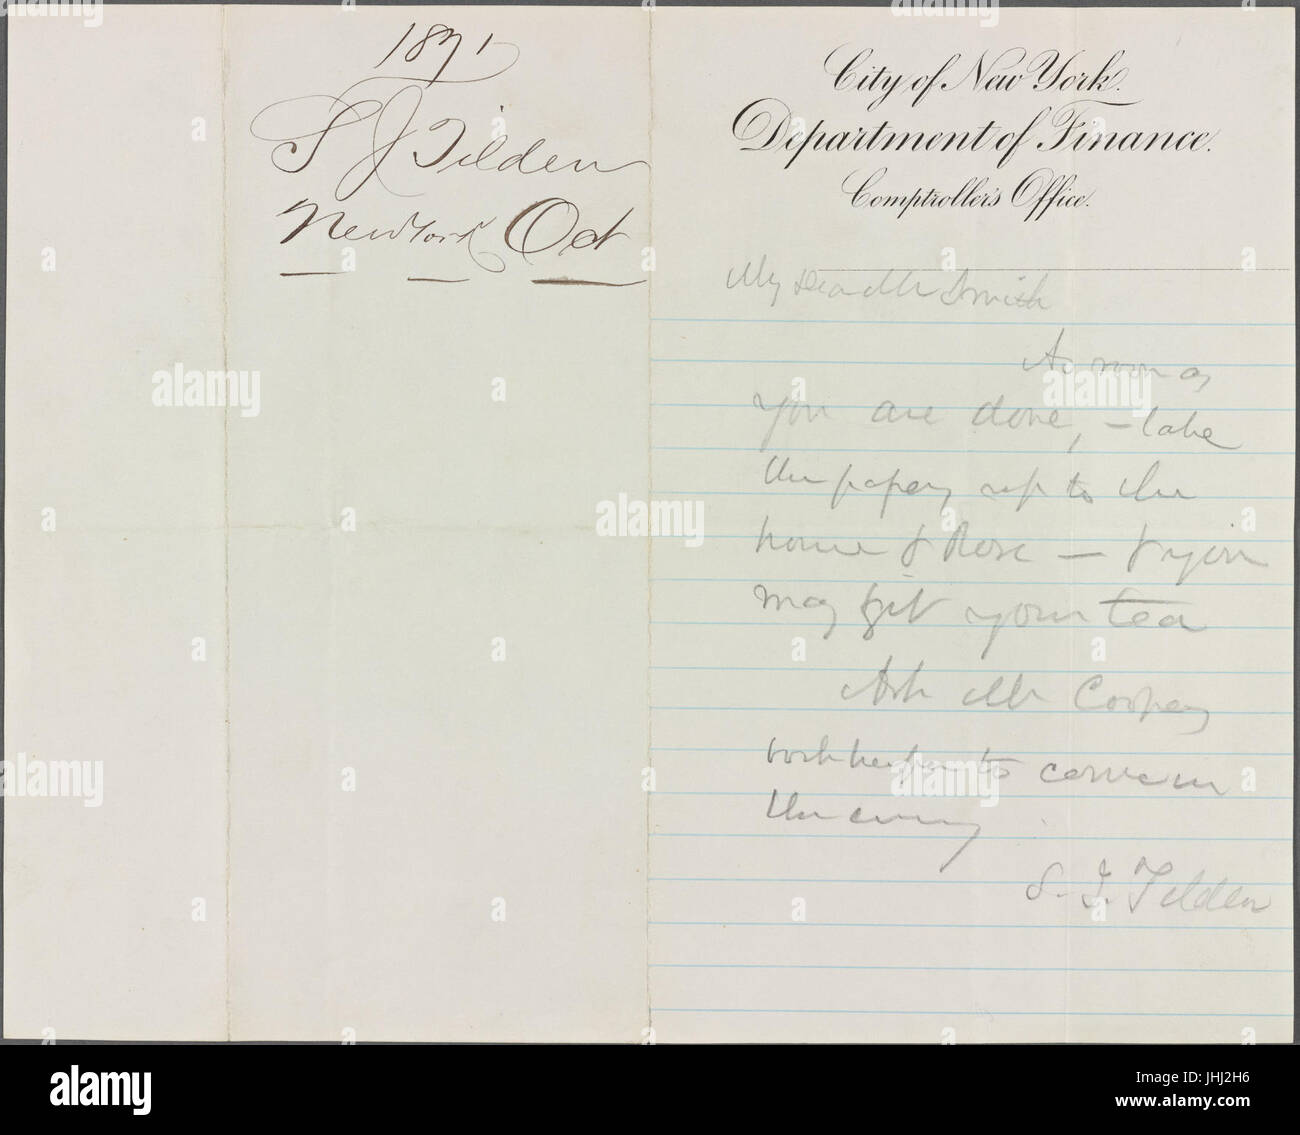 1871
S J Tilden
New York Oct
City of New York.
Department of Finance.
Comptroller's Office.
My Dear Mr Smith
As soon as
you are done, – take
the papers up to the
house of Rose – & you
may get your tea
Ask Mr
bookkeeper to come in
the evening
S. J. Tilden
alamy
alamy stock photo
Image ID: JHJ2H6
www.alamy.com